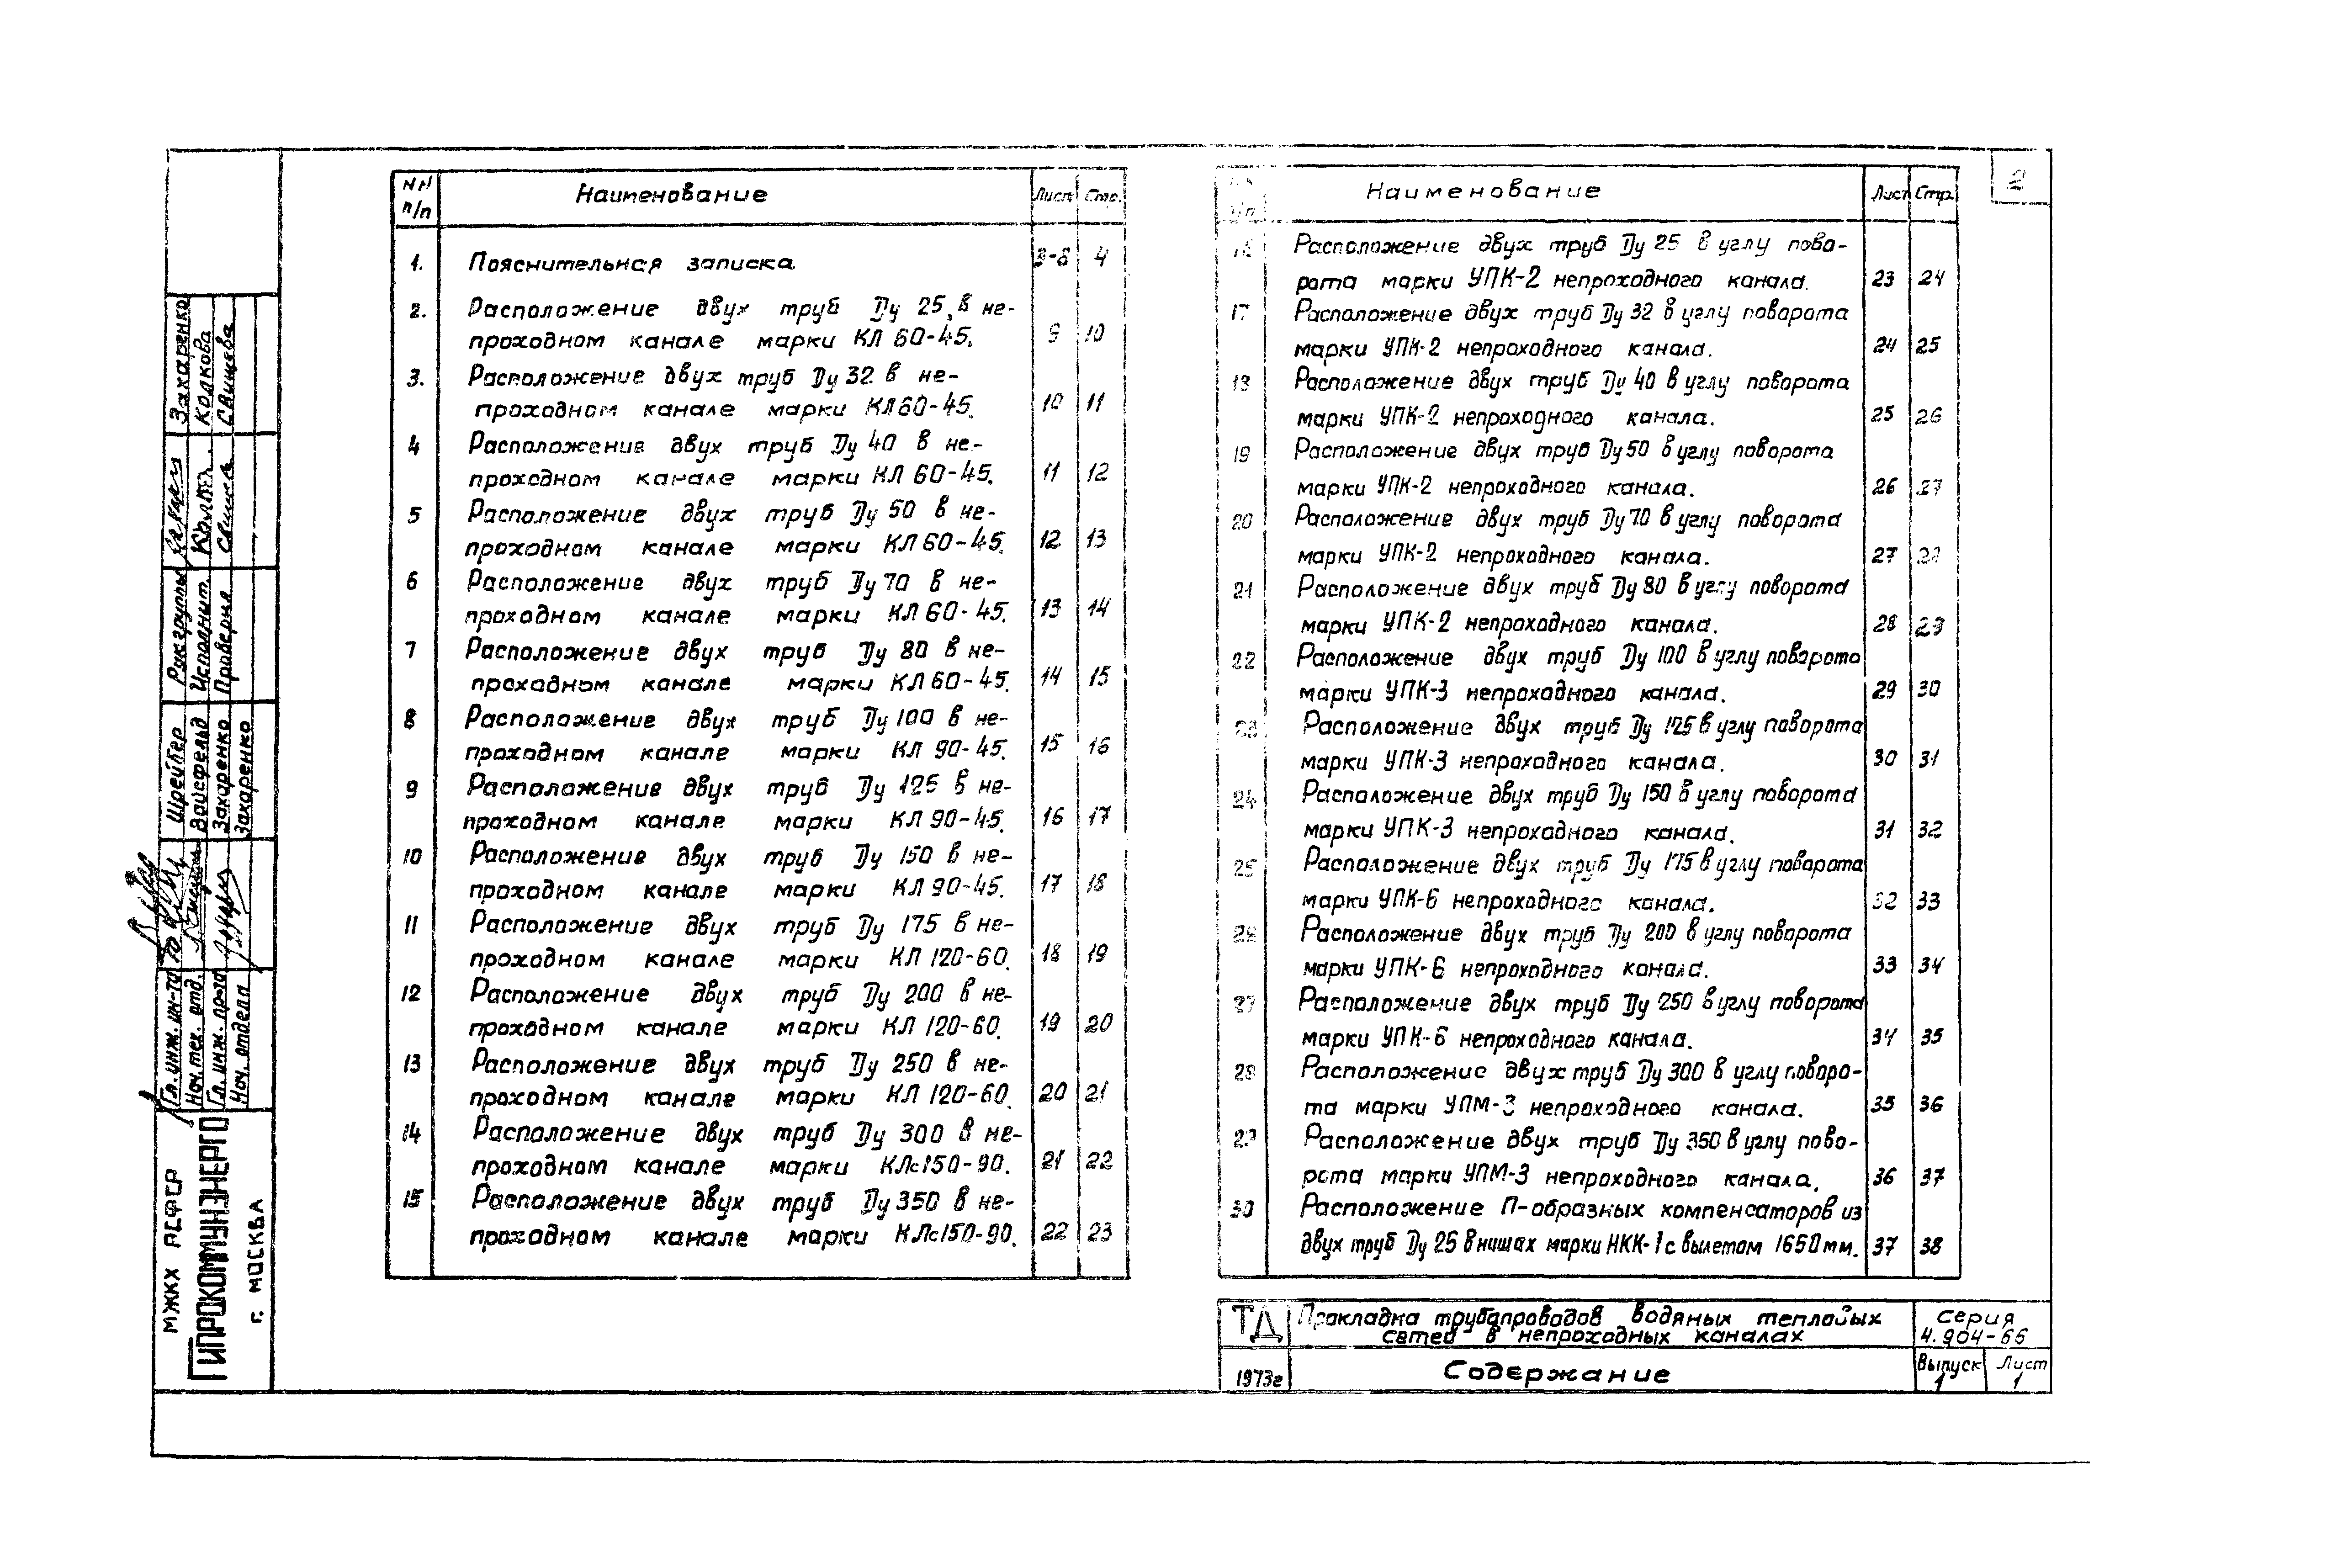 2
NN п/п Наименование Лист Стр.
1. Пояснительная записка 3-8 4
2. Расположение двух труб Ду 25 в не-
проходном канале марки КЛ 60-45. 9 10
3. Расположение двух труб Ду 32 в не-
проходном канале марки КЛ60-45. 10 11
4 Расположение двух труб Ду 40 в не-
проходном канале марки КЛ 60-45. 11 12
5 Расположение двух труб Ду 50 в не-
проходном канале марки КЛ60-45. 12 13
6 Расположение двух труб Ду 70 в не-
проходном канале марки КЛ60-45. 13 14
7 Расположение двух труб Ду 80 в не-
проходном канале марки КЛ60-45. 14 15
8 Расположение двух труб Ду 100 в не-
проходном канале марки КЛ 90-45. 15 16
9 Расположение двух труб Ду 125 в не-
проходном канале марки КЛ 90-45. 16 17
10 Расположение двух труб Ду 150 в не-
проходном канале марки КЛ 90-45. 17 18
11 Расположение двух труб Ду 175 в не-
проходном канале марки КЛ 120-60. 18 19
12 Расположение двух труб Ду 200 в не-
проходном канале марки КЛ 120-60. 19 20
13 Расположение двух труб Ду 250 в не-
проходном канале марки КЛ 120-60. 20 21
14 Расположение двух труб Ду 300 в не-
проходном канале марки КЛс150-90. 21 22
15 Расположение двух труб Ду 350 в не-
проходном канале марки КЛс150-90. 22 23
п/п Наименование Лист Стр.
16 Расположение двух труб Ду 25 в углу пово-
рота марки УПК-2 непроходного канала. 23 24
17 Расположение двух труб Ду 32 в углу поворота
марки УПК-2 непроходного канала. 24 25
18 Расположение двух труб Ду 40 в углу поворота
марки УПК-2 непроходного канала. 25 26
19 Расположение двух труб Ду 50 в углу поворота
марки УПК-2 непроходного канала. 26 27
20 Расположение двух труб Ду 70 в углу поворота
марки УПК-2 непроходного канала. 27 28
21 Расположение двух труб Ду 80 в углу поворота
марки УПК-2 непроходного канала. 28 29
22 Расположение двух труб Ду 100 в углу поворота
марки УПК-3 непроходного канала. 29 30
23 Расположение двух труб Ду 125 в углу поворота
марки УПК-3 непроходного канала. 30 31
24 Расположение двух труб Ду 150 в углу поворота
марки УПК-3 непроходного канала. 31 32
25 Расположение двух труб Ду 175 в углу поворота
марки УПК-6 непроходного канала. 32 33
26 Расположение двух труб Ду 200 в углу поворота
марки УПК-6 непроходного канала. 33 34
27 Расположение двух труб Ду 250 в углу поворота
марки УПК-6 непроходного канала. 34 35
28 Расположение двух труб Ду 300 в углу поворо-
та марки УПМ-3 непроходного канала. 35 36
29 Расположение двух труб Ду 350 в углу пово-
рота марки УПМ-3 непроходного канала. 36 37
30 Расположение П-образных компенсаторов из
двух труб Ду 25 в нишах марки НКК-1 с вылетом 1650мм. 37 38
ТД Прокладка трубопроводов водяных тепловых
сетей в непроходных каналах
Серия
4.904-66
1973г Содержание
Выпуск 1
Лист 1
МЖКХ РСФСР
ГИПРОКОММУНЭНЕРГО
г. МОСКВА
Гл. инж. ин-та Шрейбер
Нач. тех. отд. Вайсфельд
Гл. инж. пр-та Захаренко
Нач. отдела Захаренко
Рук. группы Захаренко
Исполнит. Колкова
Проверил Свищева